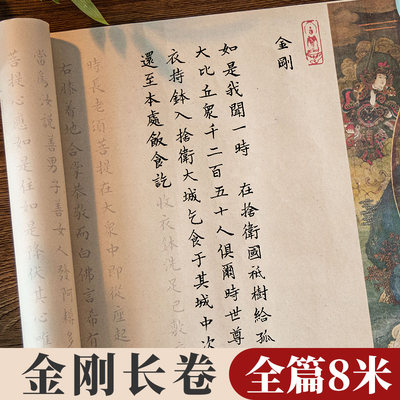 金剛
如是我聞一時 在捨衛國祗樹給孤
大比丘眾千二百五十人俱爾時世尊
衣持鉢入捨衛大城乞食于其城中次
還至本處飯食訖收衣鉢洗足已敷
時長老須菩提在大眾中即從座起
右膝著地合掌恭敬而白佛言希有
當為汝說善男子善女人發阿耨多
菩提心應如是住如是降伏其心唯
金刚长卷
全篇8米